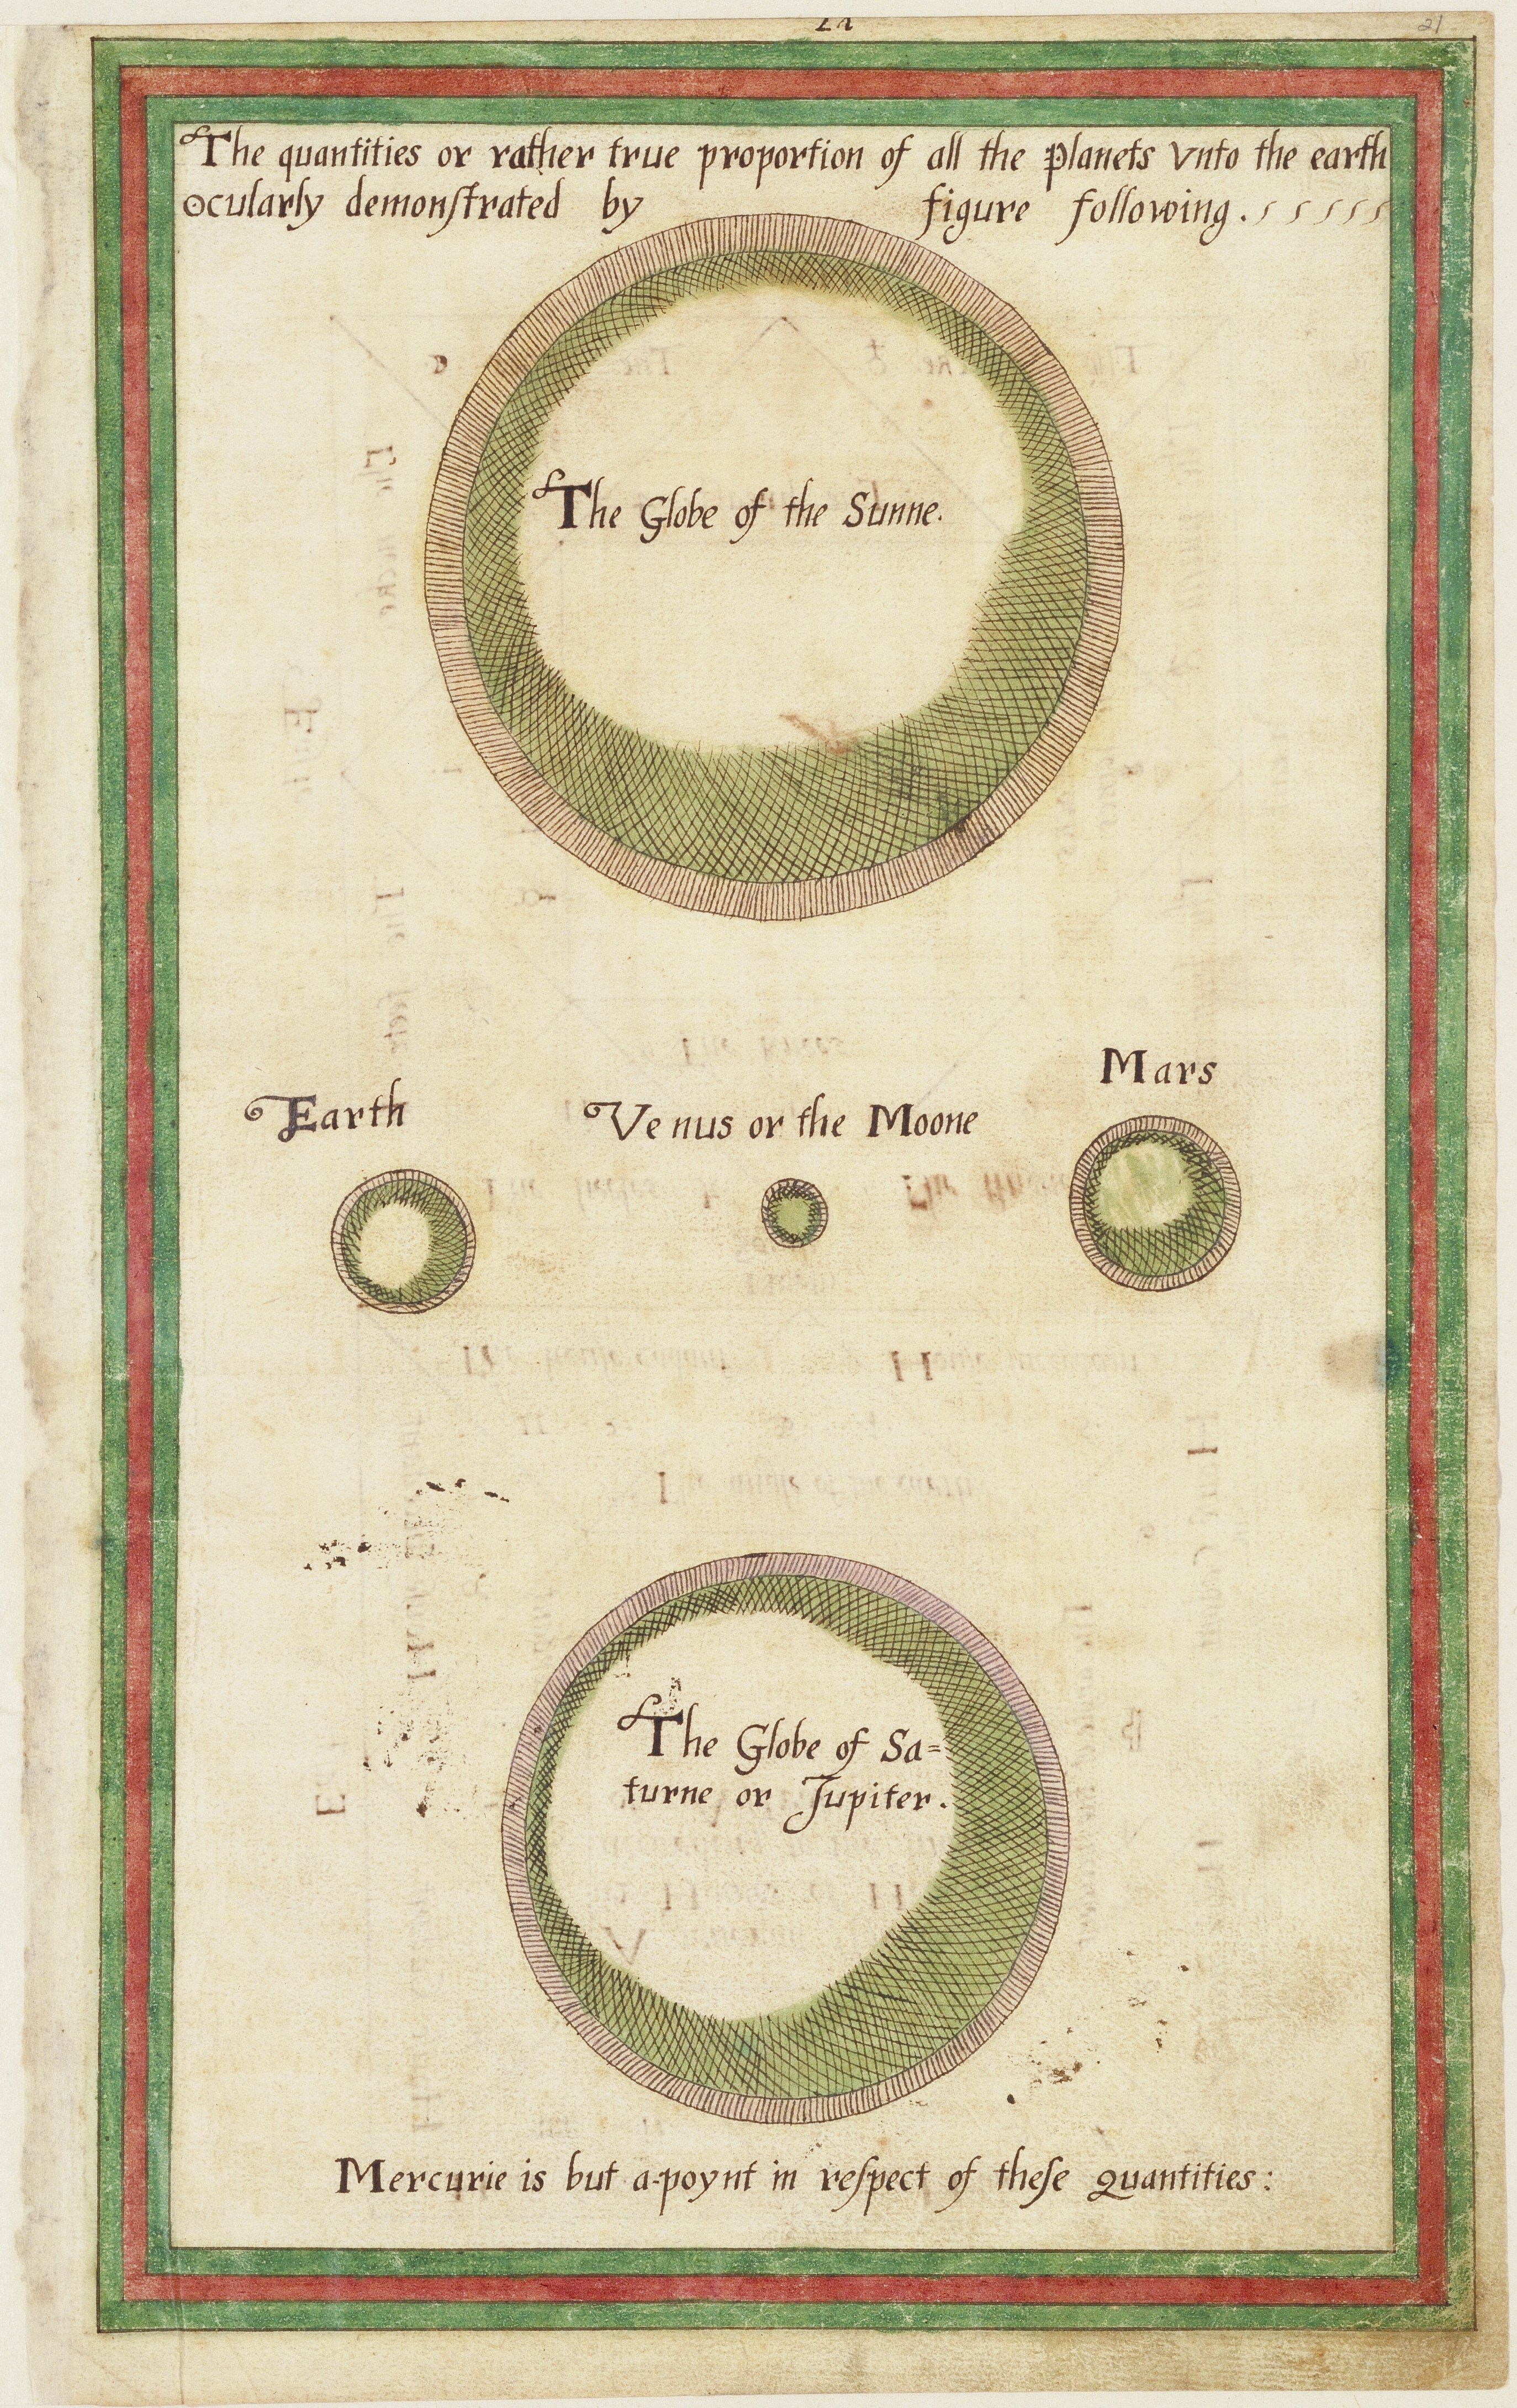 21
The quantities or rather true proportion of all the planets vnto the earth
ocularly demonſtrated by figure following. s s s s s
The Globe of the Sunne.
Mars
Earth
Venus or the Moone
The Globe of Sa=
turne or Jupiter.
Mercurie is but a-poynt in reſpect of theſe quantities: